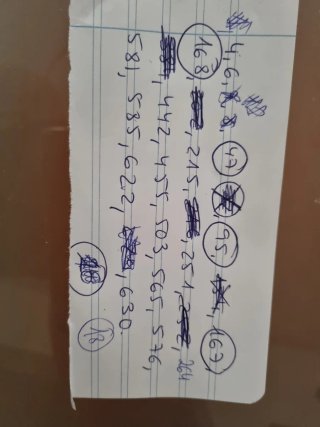 4, 6, 8, 8, 47, 95, 167,
168, 215, 251, 264
442, 455, 503, 565, 576,
581, 585, 622, 630
18